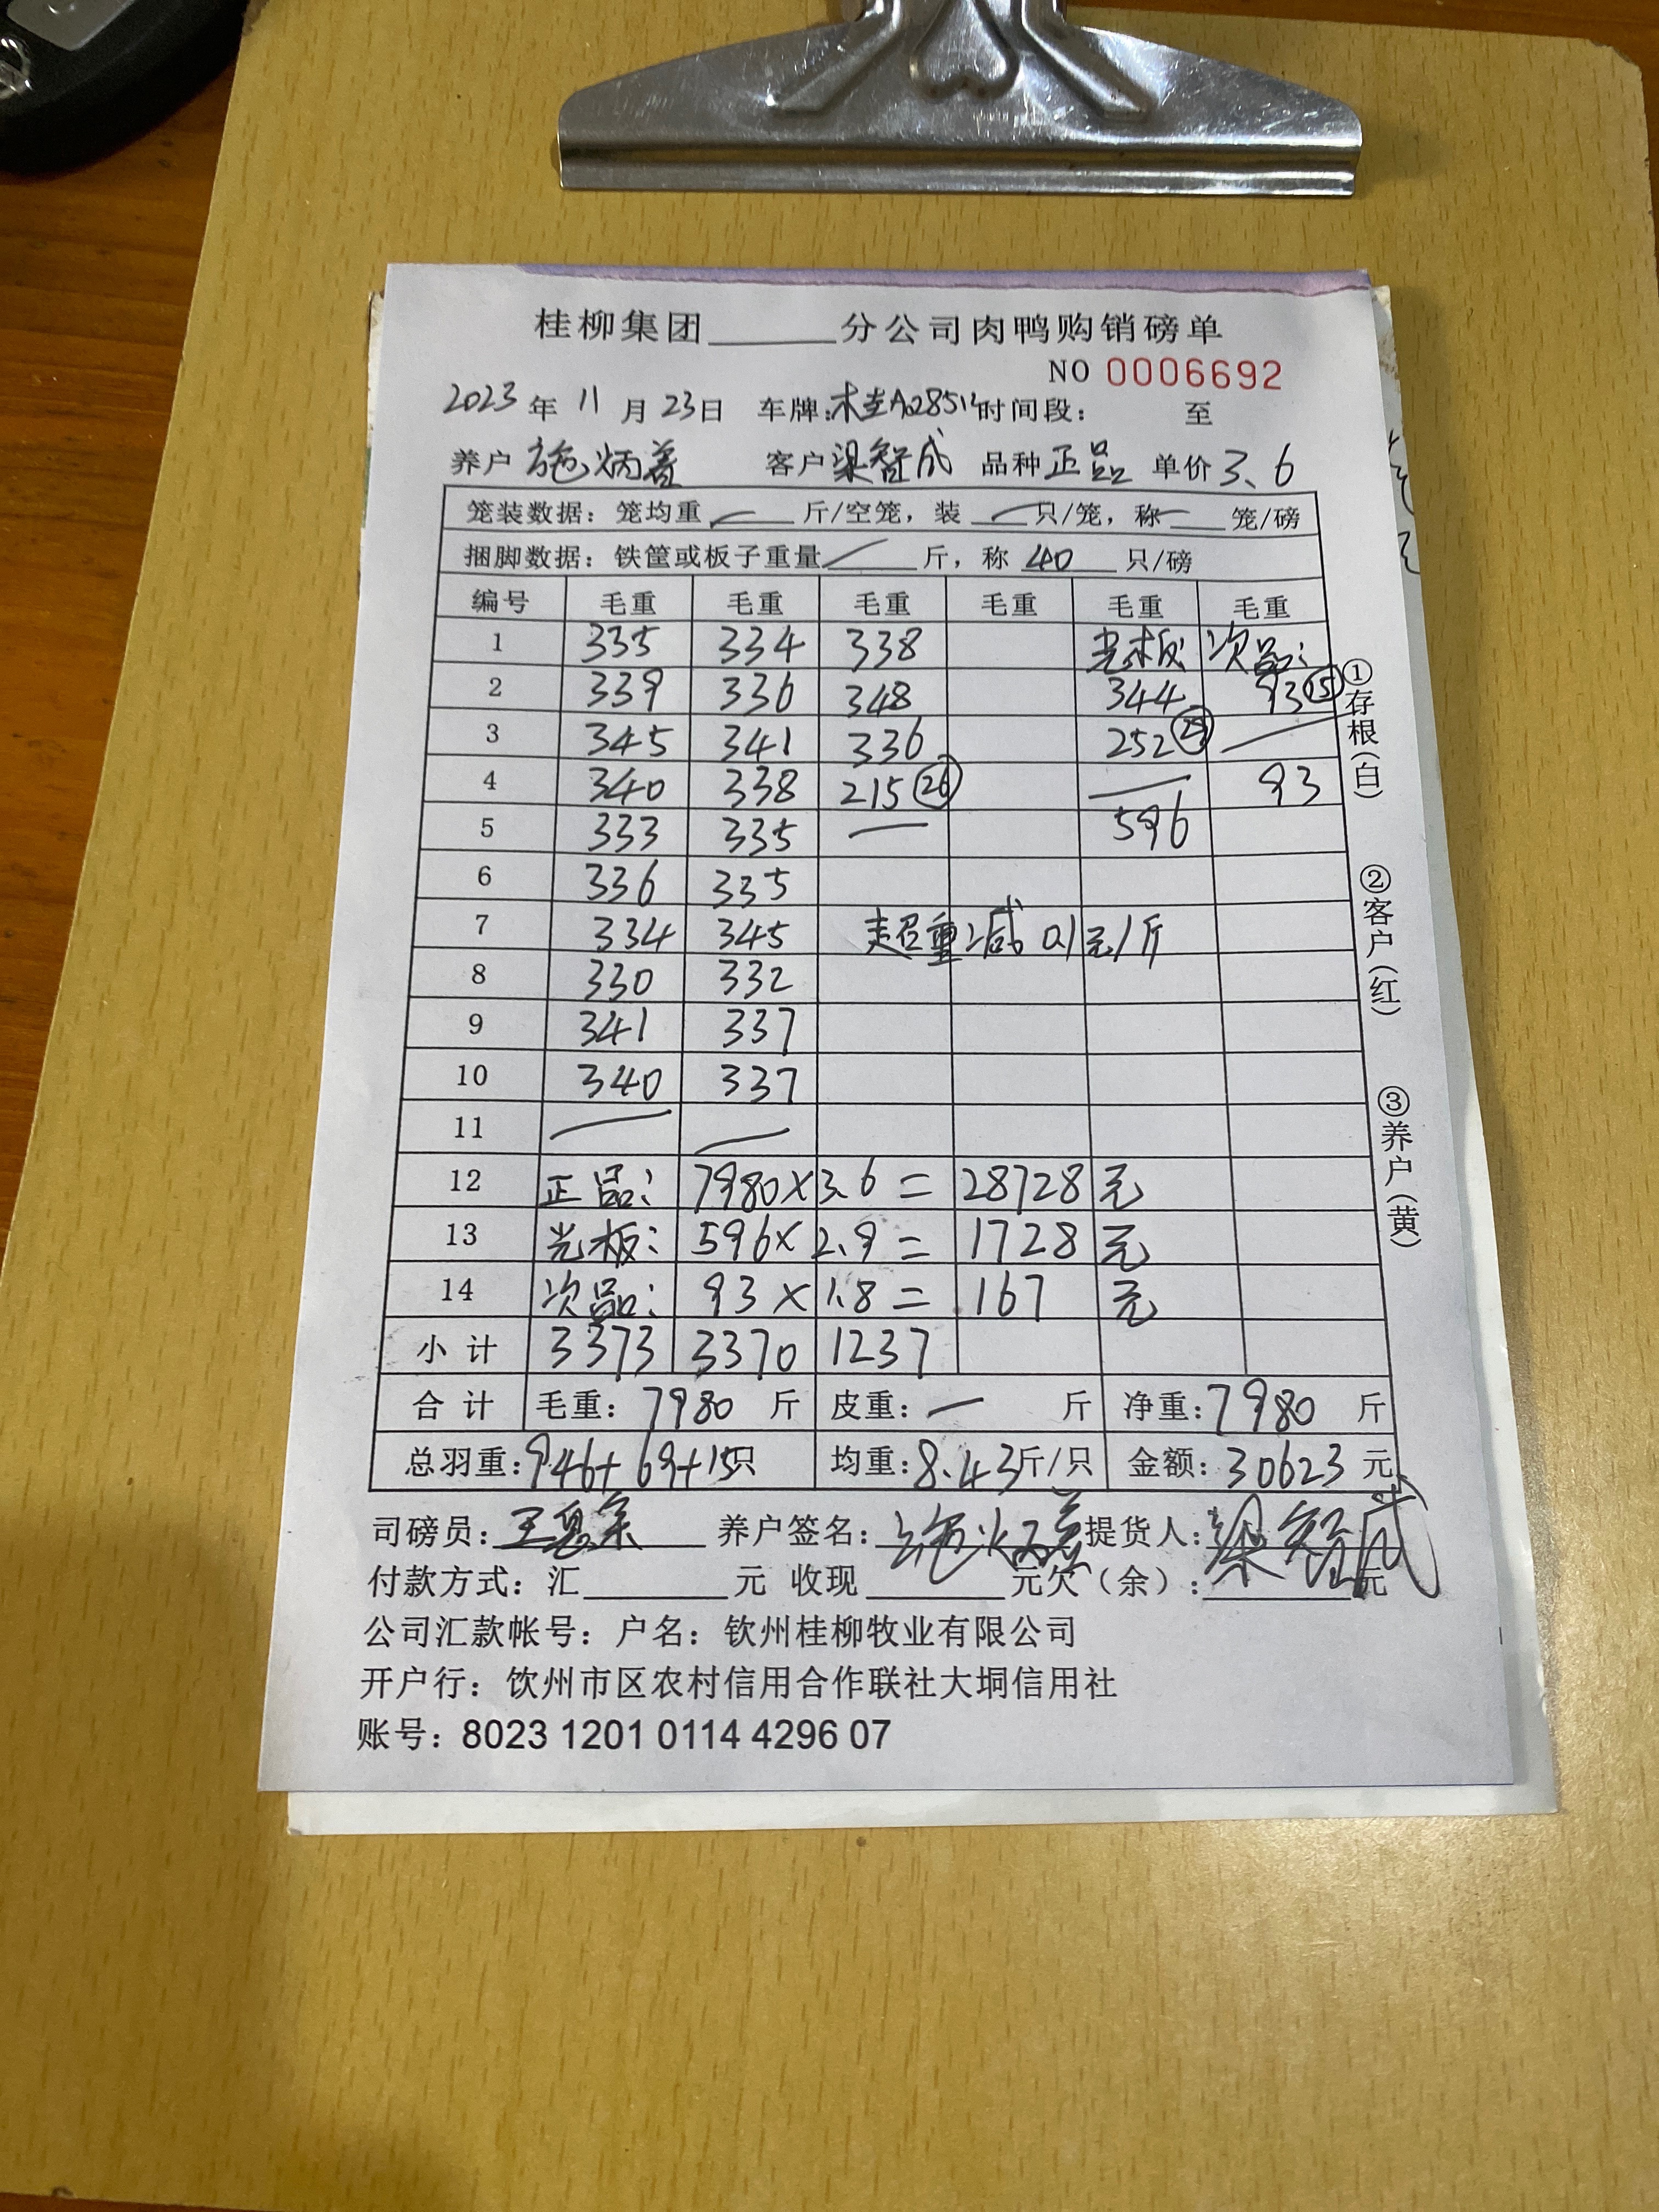 桂柳集团______分公司肉鸭购销磅单
NO 0006692
2023 年 11 月 23日 车牌:桂A02851 时间段: 至
养户 施炳善 客户 梁智成 品种 正品 单价 3.6
笼装数据:笼均重 — 斤/空笼,装 — 只/笼,称 — 笼/磅
捆脚数据:铁筐或板子重量 — 斤,称 40 只/磅
编号 毛重 毛重 毛重 毛重 毛重 毛重
1 335 334 338 光板 次品:
2 339 336 348 344 93⑮
3 345 341 336 252㉙ —
4 340 338 215㉖ — 93
5 333 335 — 596
6 336 335
7 334 345 超重减0.1元/斤
8 330 332
9 341 337
10 340 337
11 — —
12 正品: 7980×3.6= 28728 元
13 光板: 596×2.9= 1728 元
14 次品: 93×1.8= 167 元
小计 3373 3370 1237
合计 毛重:7980 斤 皮重:— 斤 净重:7980 斤
总羽重:946+69+15只 均重:8.43斤/只 金额:30623 元
司磅员: 养户签名:施炳善 提货人:梁智成
付款方式:汇______元 收现______元欠(余):______元
公司汇款帐号:户名:钦州桂柳牧业有限公司
开户行:饮州市区农村信用合作联社大垌信用社
账号:8023 1201 0114 4296 07
①存根(白)
②客户(红)
③养户(黄)